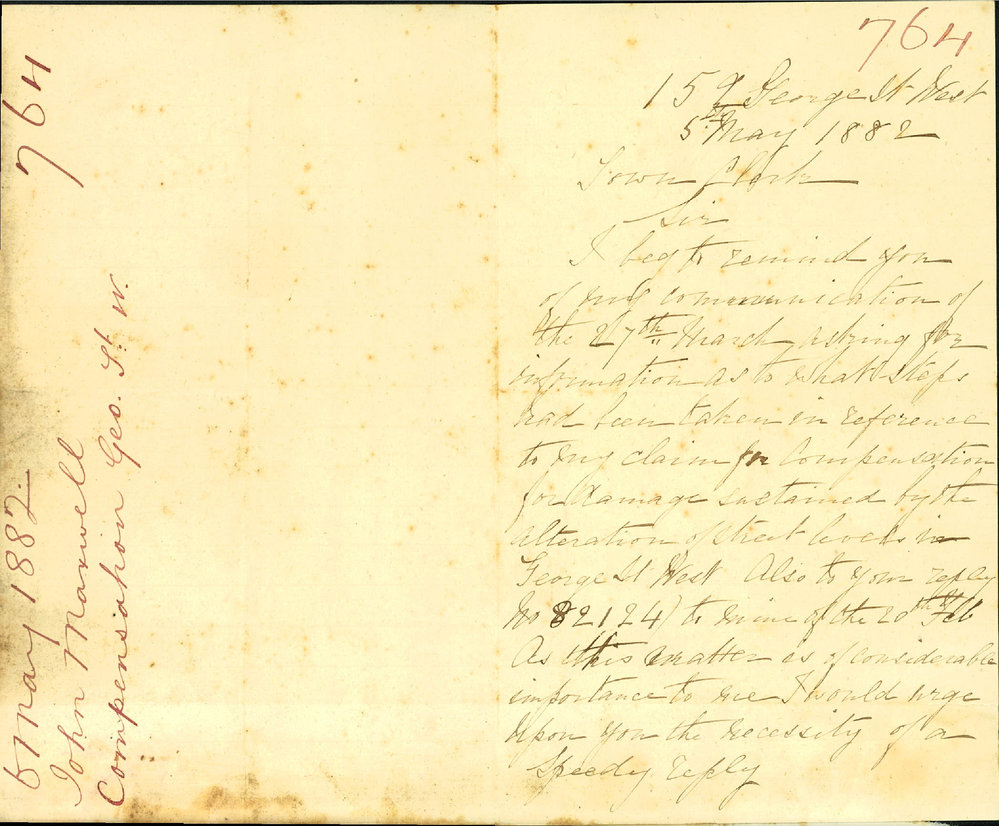 764
6 May 1882
John Maxwell
Compensation Geo. St. W.
764
159 George St West
5th May 1882
Town Clerk
Sir
I beg to remind you
of my communication of
the 27th March asking for
information as to what steps
had been taken in reference
to my claim for Compensation
for damage sustained by the
alteration of street levels in
George St West Also to your reply
No 82124) to mine of the 20th Feb
As this matter is of considerable
importance to me I would urge
upon you the necessity of a
Speedy reply